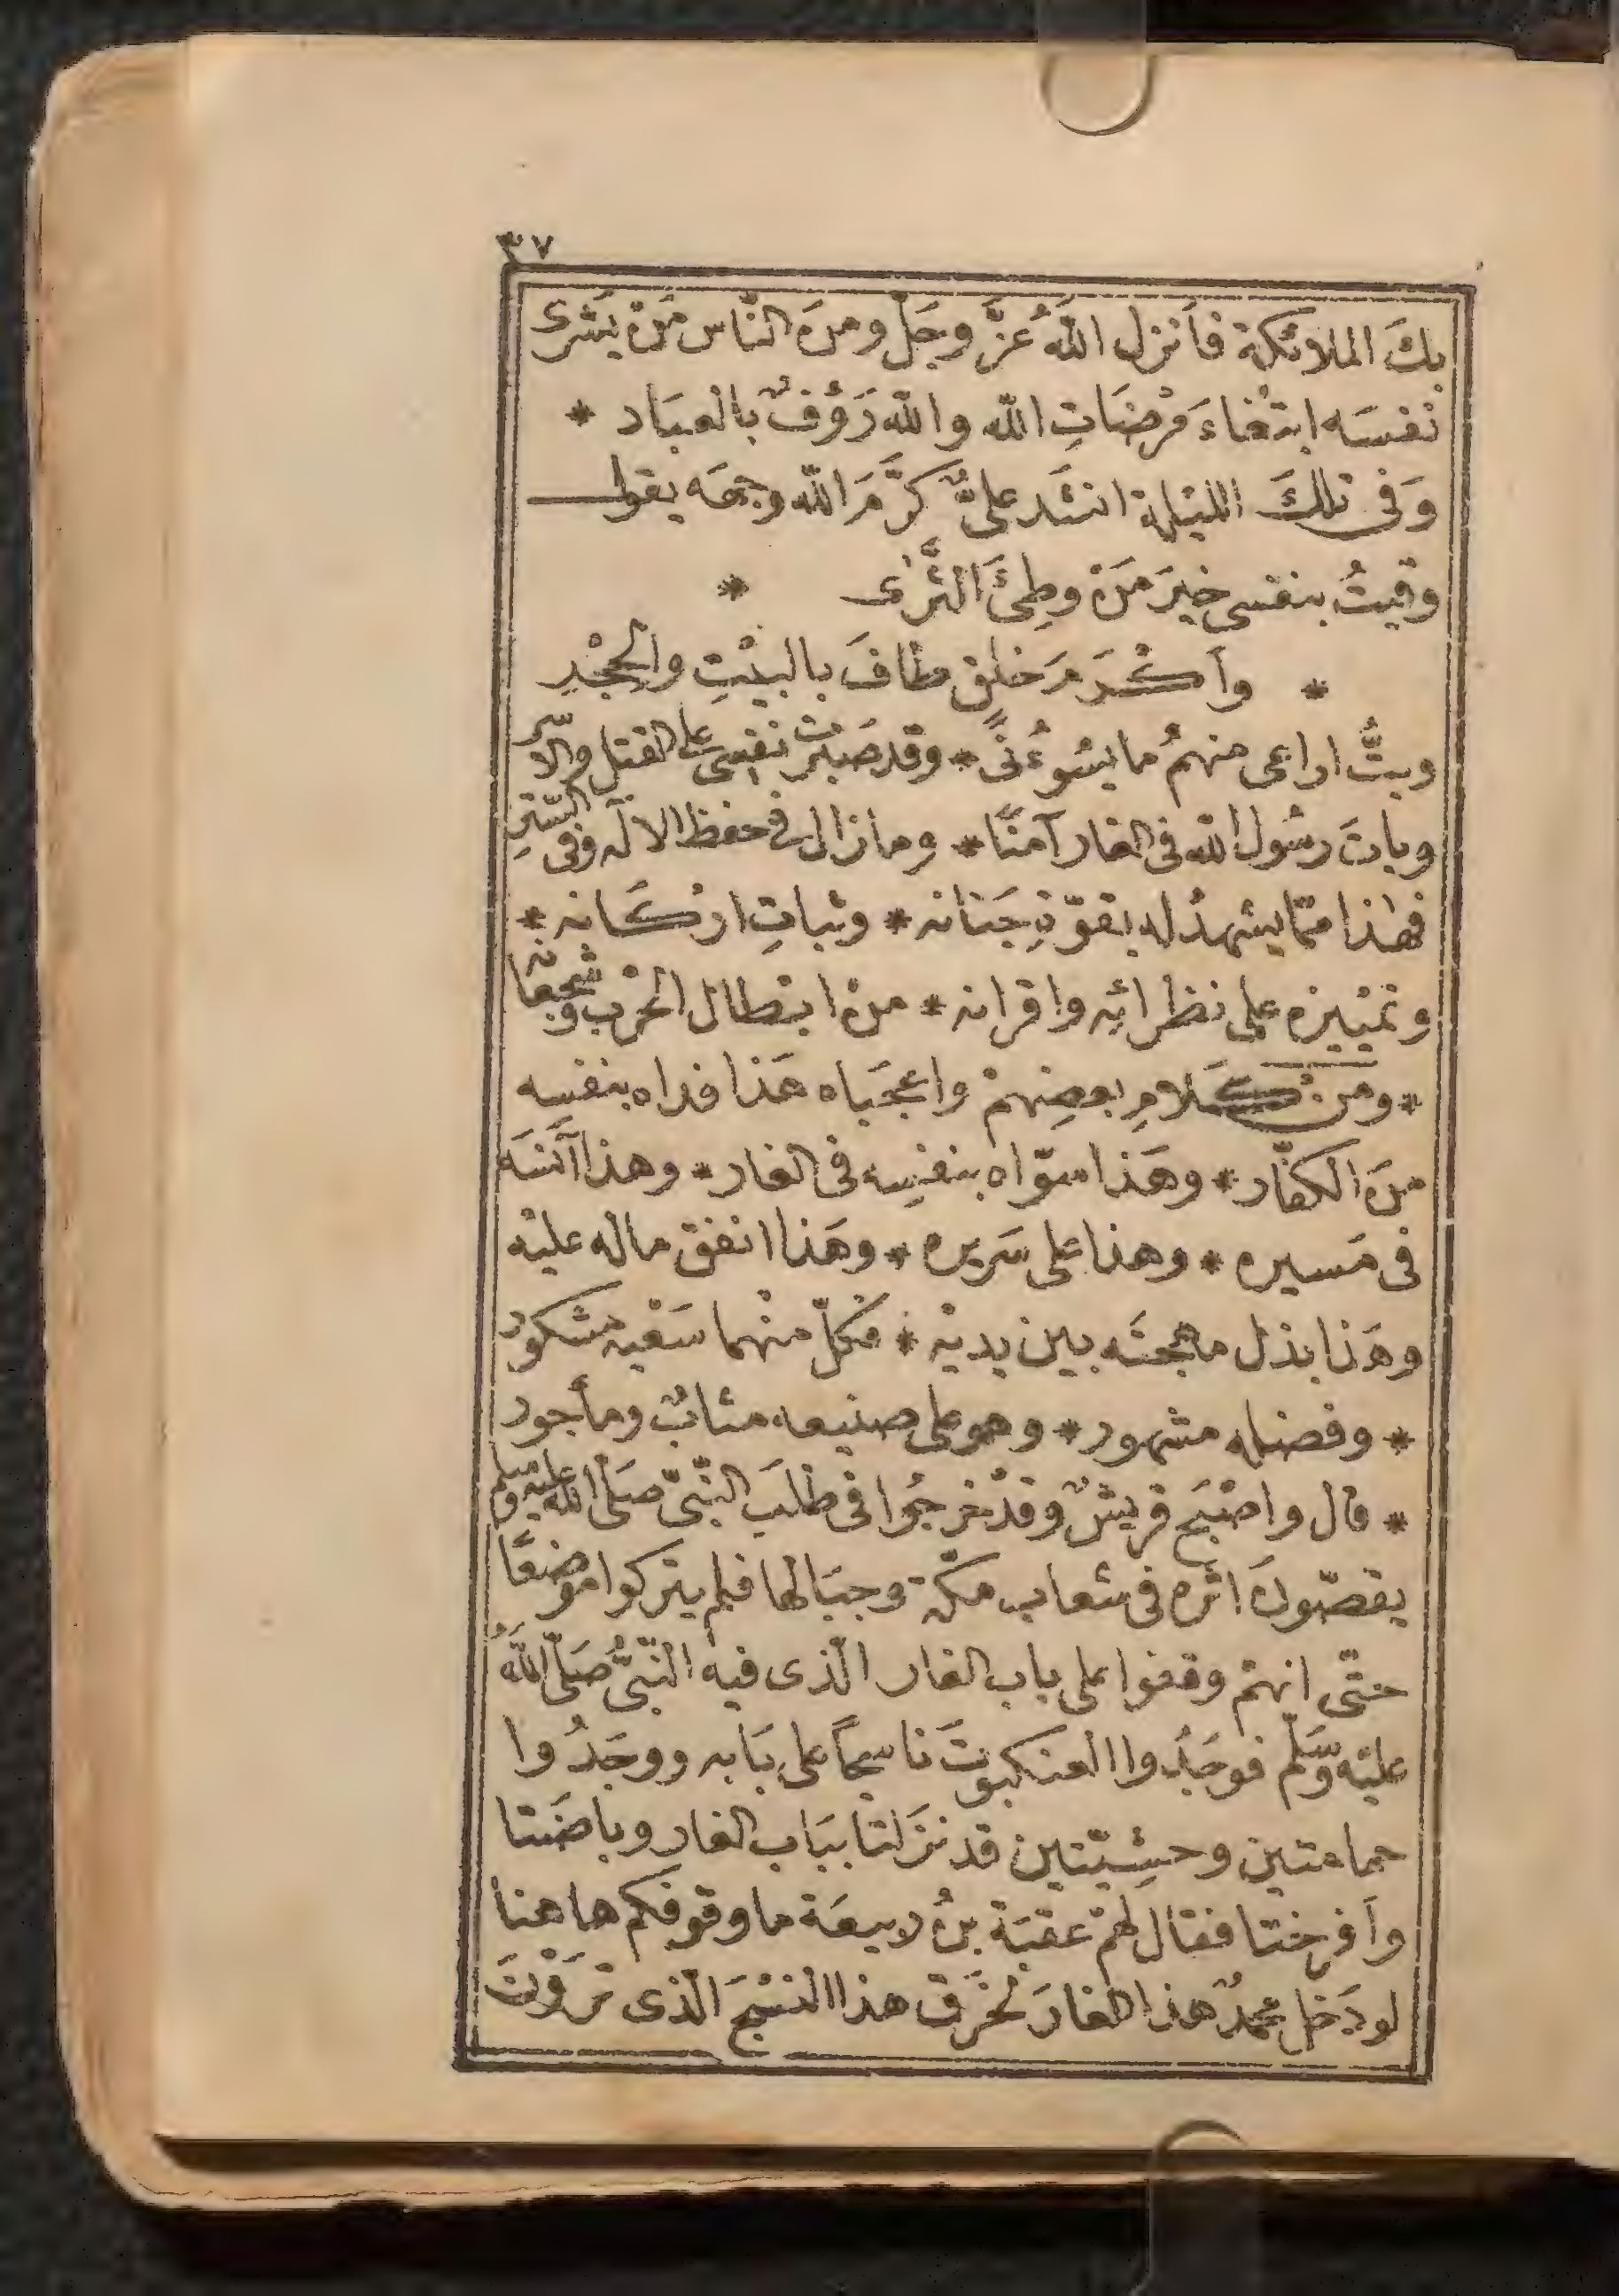 ٣٧
بكَ الملائكة فأنزل اللّٰهُ عزّ وجَلّ ومنَ النّاس مَنْ يَشرى
نفسَه ابتغاءَ مَرْضَاتِ اللّٰه واللّٰه رَؤُفٌ بالعبَاد *
وَفى تلكَ الليْلة انشَد علىٌّ كرَّمَ اللّٰه وجهَه يقول
وقيتُ بنفسى خيرَ مَنْ وطِئَ الثَّرٰى *
* وأكْرَمَ خلق طافَ بالبيْتِ والحِجْرِ
وبتُّ اراعى منهمُ ما يسُوءُنىً * وقد صَبَرْت نفسى على القتل والاسْر
وباتَ رسُول اللّٰه فى الغار آمنًا * وما زال فى حفظ الالٓه وفى السّترِ
فهٰذا ممّا يشهدُ له بقوّةِ جَنانه * وثباتِ ارْكَانه *
وتمْييزه على نظرائِه واقرانه * منْ ابْطال الحَرْب وشجعانه
* ومن كَلامِ بعضِهمْ واعجَباه هَذا فداه بنفسه
منَ الكفّار * وهَذا سوّاه بنفسِه فى الغار * وهذا آنَسَه
فى مَسيره * وهذا على سَريره * وهَذا انفق ماله عليْه
وهَذا بذل مهجتَه بين يديْه * فكلّ منْهما سَعْيه مشكور
* وفضله مشهور * وهو على صنيعه مثابٌ ومأجور
* قال واصْبَح قريشٌ وقدْ خرجُوا فى طَلَبَ النّبىّ صَلّى اللّٰه عليه وسلم
يقصّونَ اثره فى شعاب مكّة وجبَالها فلم يتركوا موْضعًا
حتّى انهمْ وقفوا على باب الغار الّذى فيه النّبىُّ صَلّى اللّٰهُ
عليْه وَسّلّم فوجَدُوا العنكبوتَ ناسجًا على بَابه ووجَدُوا
حمامتين وحشِيّتين قد نزَلتا ببَاب الغار وباضَتا
وأفرختا فقال لهمْ عقبَة بنُ ربيعَة ما وقوفكم هاهنا
لو دَخل محمدٌ هذا الغارَ لخرَق هذا النسْجَ الّذى تَرَوْنَ